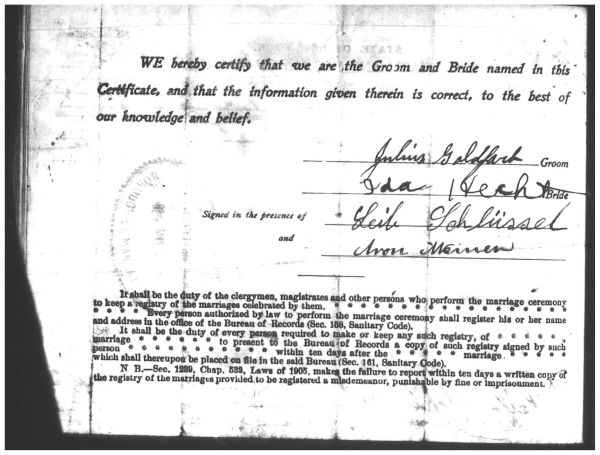 WE hereby certify that we are the Groom and Bride named in this
Certificate, and that the information given therein is correct, to the best of
our knowledge and belief.
Julius Goldfarb Groom
Ida Hecht Bride
Signed in the presence of Leib Schlüssel
and
It shall be the duty of the clergymen, magistrates and other persons who perform the marriage ceremony
to keep a registry of the marriages celebrated by them. * * * * * * * * * * * *
Every person authorized by law to perform the marriage ceremony shall register his or her name
and address in the office of the Bureau of Records (Sec. 158, Sanitary Code).
It shall be the duty of every person required to make or keep any such registry, of * * * * *
marriage * * * * * * * to present to the Bureau of Records a copy of such registry signed by such
person * * * * * * * * * * * within ten days after the * * * * * marriage * * * * *
which shall thereupon be placed on file in the said Bureau (Sec. 161, Sanitary Code).
N B.—Sec. 1239, Chap. 532, Laws of 1905, makes the failure to report within ten days a written copy of
the registry of the marriages provided to be registered a misdemeanor, punishable by fine or imprisonment.